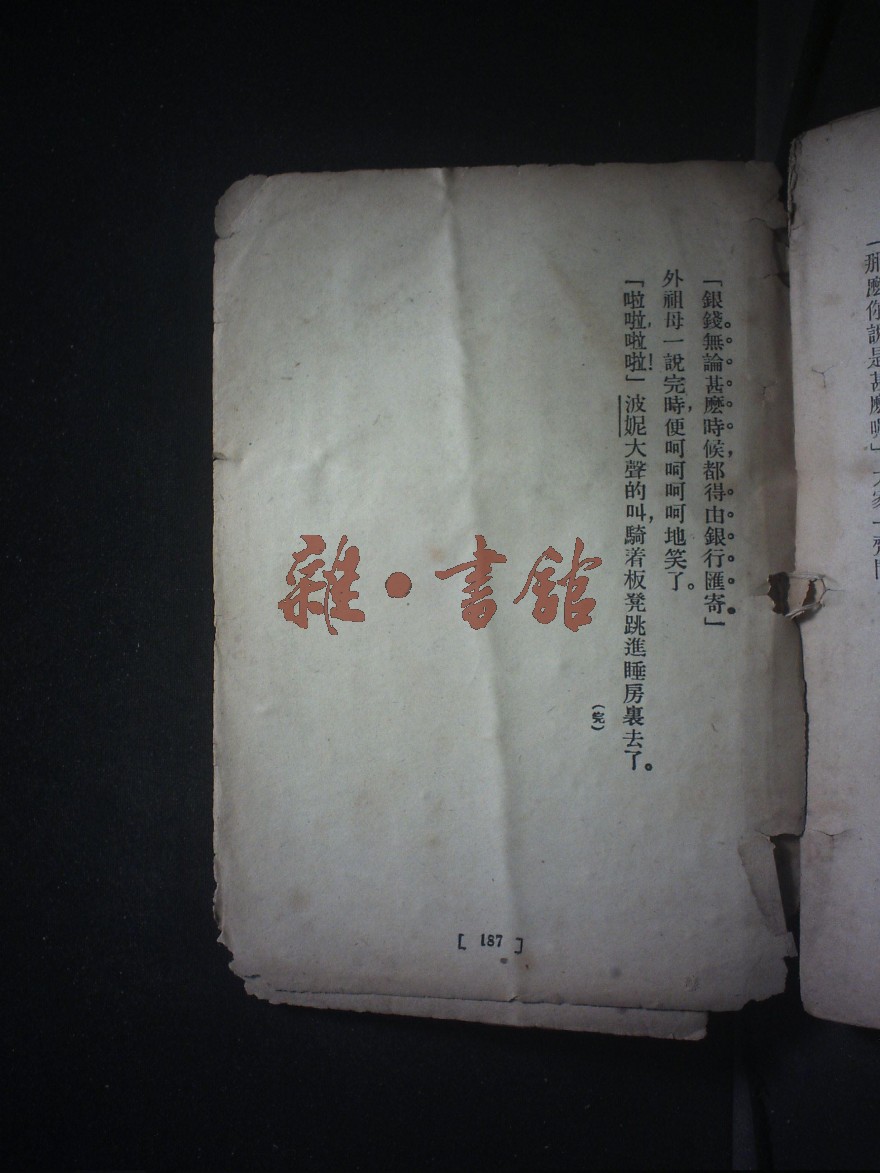 「那麼你說是甚麼呢」大家一齊問
「銀錢無論甚麼時候，都得由銀行匯寄。」
外祖母一說完時，便呵呵呵呵地笑了。
「啦啦，啦啦！」波妮大聲的叫，騎着板凳跳進睡房裏去了。
(完)
[ 187 ]
雜·書館